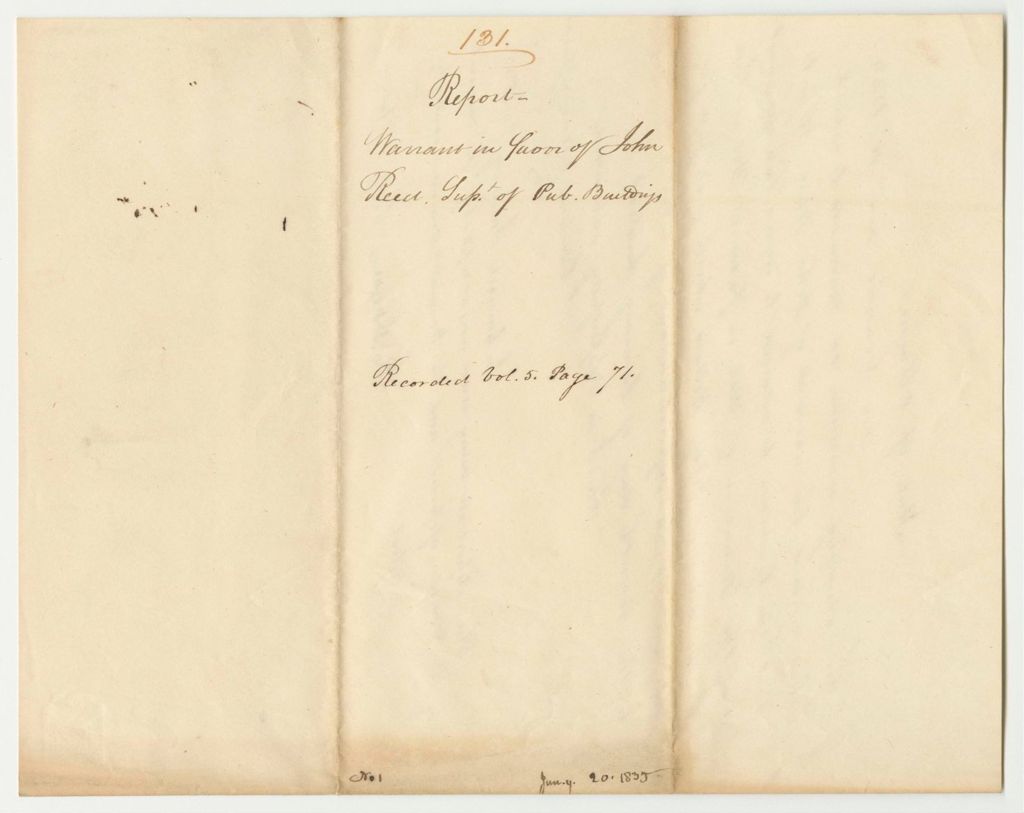 131.
Report-
Warrant in favor of John
Reed, Supt. of Pub. Buildings
Recorded Vol. 5. Page 71.
No 1
Jany. 20. 1835